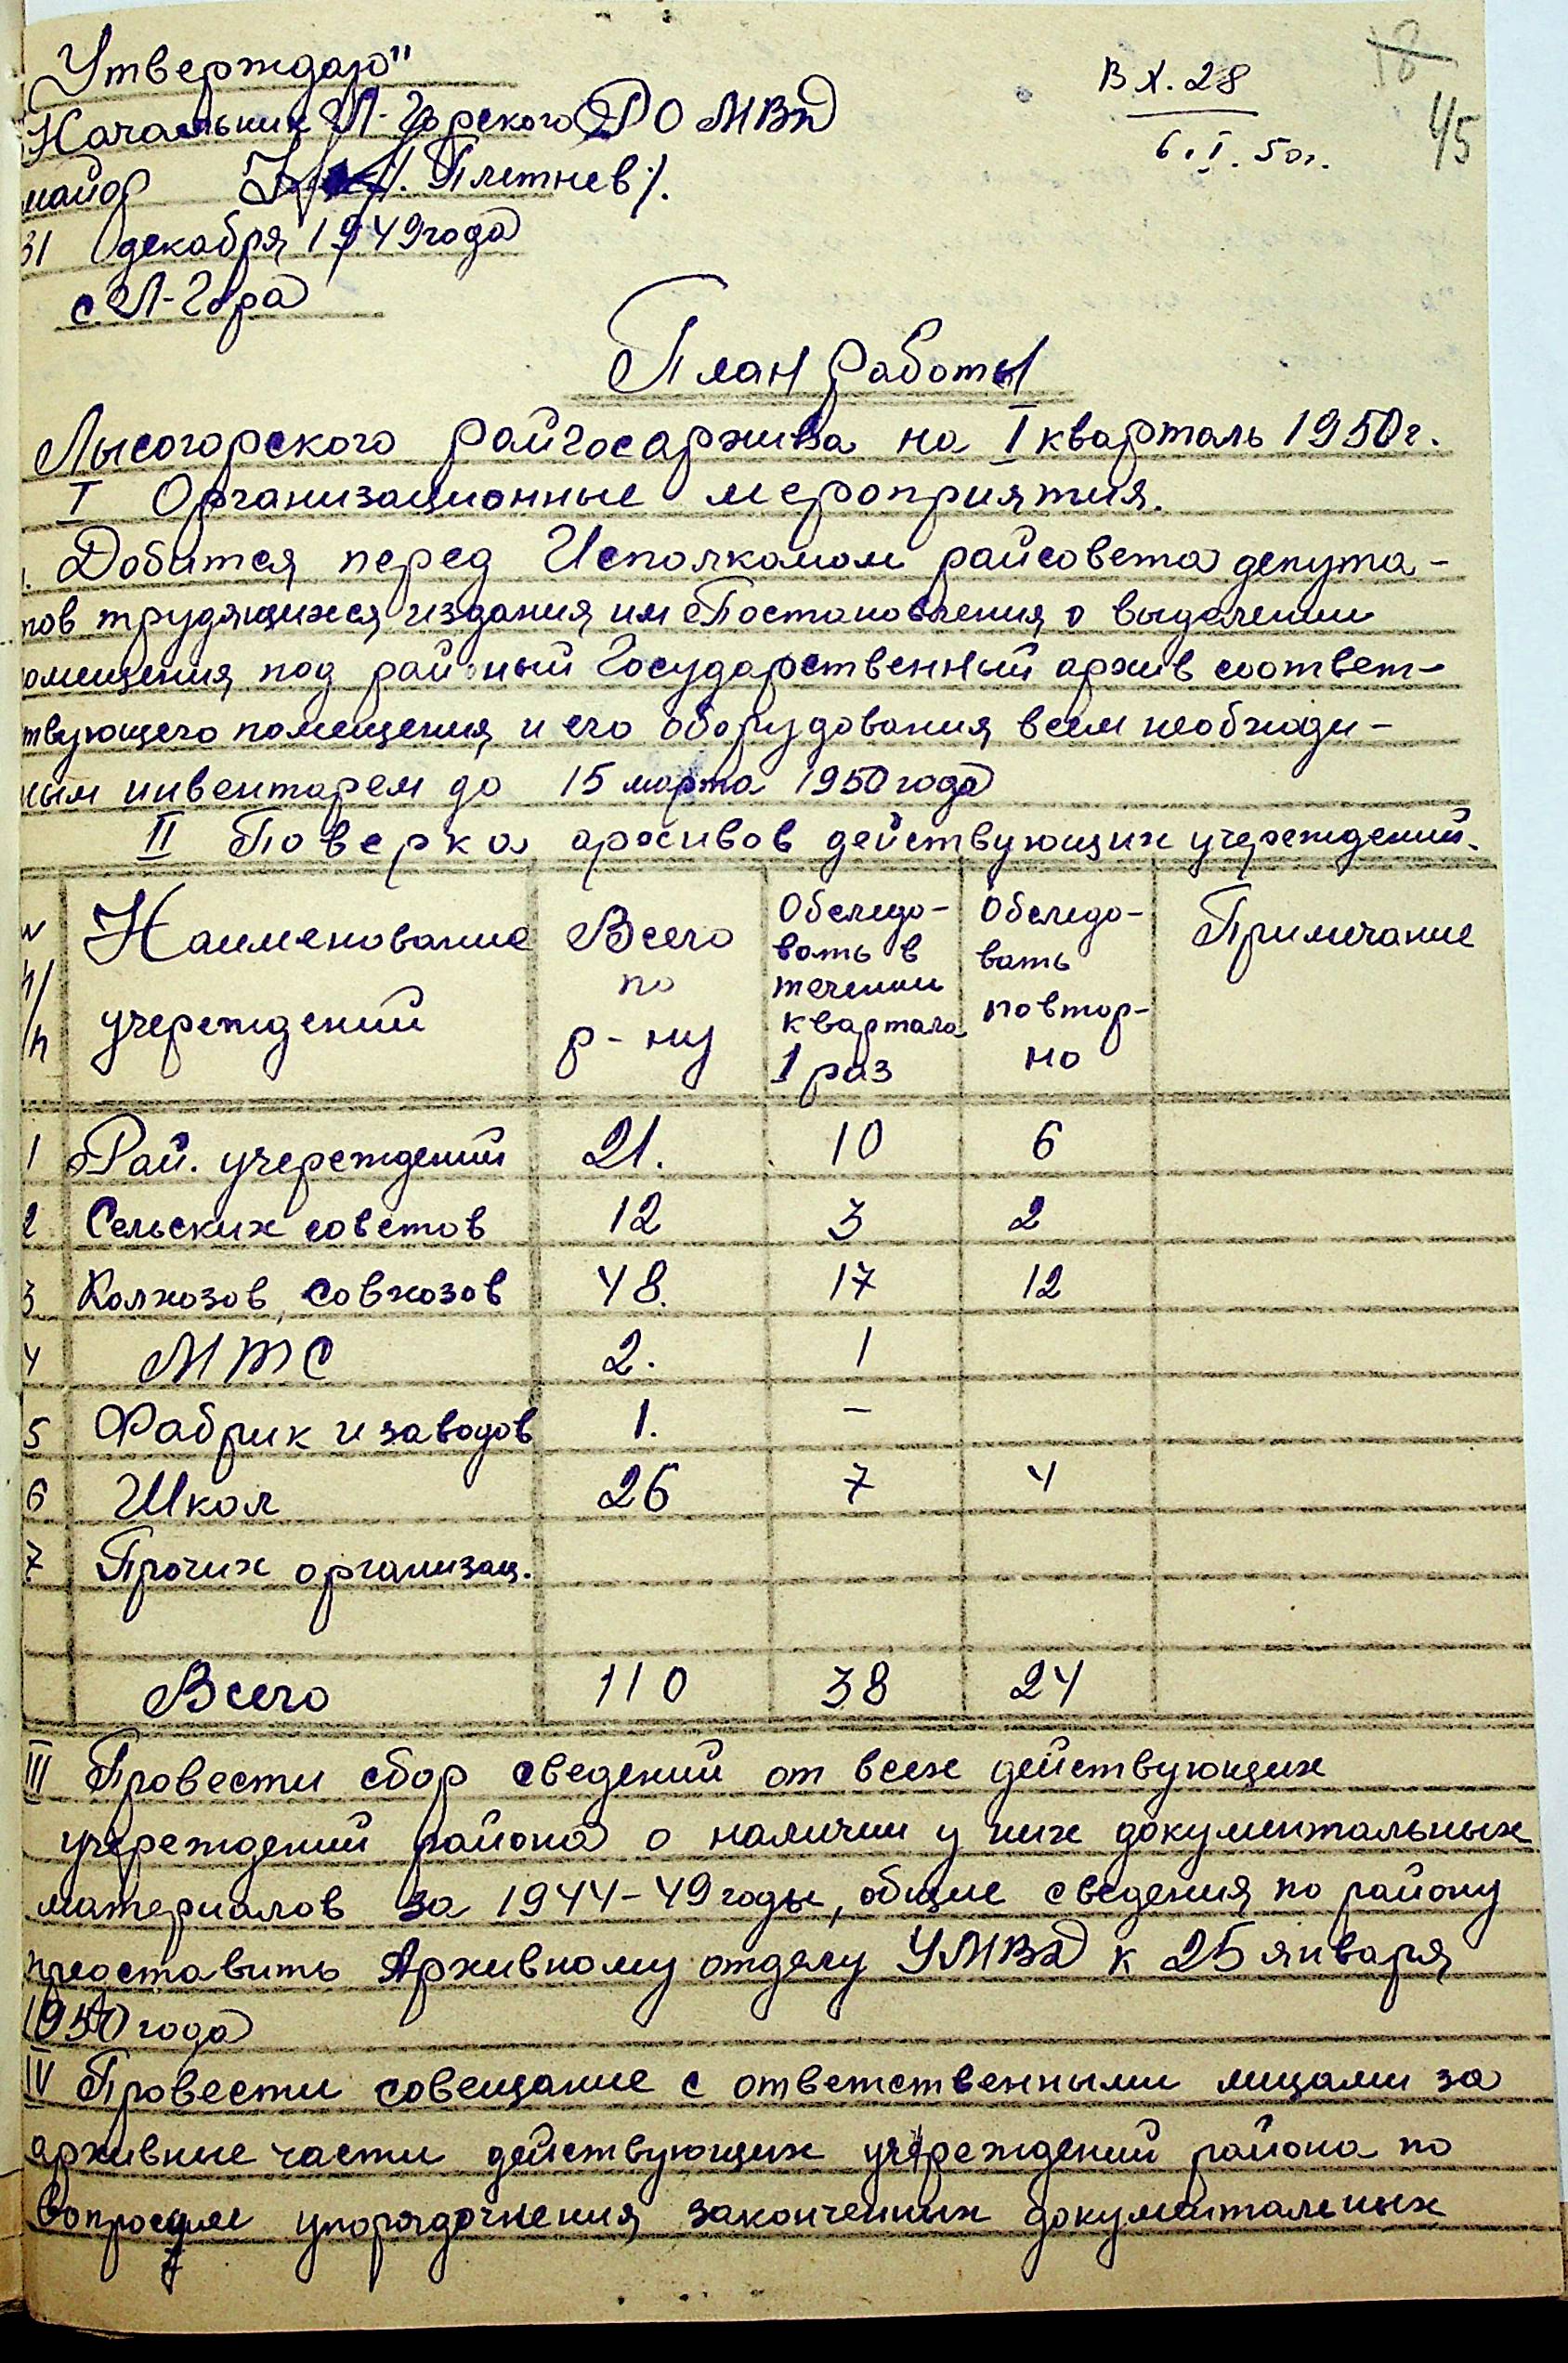 Утверждаю"
Вх. 28
18
45
Начальник Л-Горского РО МВД
6.I.50г.
майор /. Плетнев /.
31 декабря 1949 года
с. Л-Гора
План работы
Лысогорского райгосархива на I кварталь 1950 г.
I Организационные мероприятия.
. Добится перед Исполкомом райсовета депута-
тов трудящихся издания им Постановления о выделении
омещения под районый Государственный архив соответ-
твующего помещения и его оборудования всем необходи-
ным инвентарем до 15 марта 1950 года
II Поверка архивов действующих учереждений.
N п/п Наименование учереждений Всего по р-ну Обследо-вать в течении квартала 1 раз Обследо-вать повтор-но Примечание
1 Рай. учереждений 21. 10 6
2 Сельских советов 12 3 2
3 Колхозов, совхозов 48. 17 12
4 МТС 2. 1
5 Фабрик и заводов 1. –
6 Школ 26 7 4
7 Прочих организац.
Всего 110 38 24
III Провести сбор сведений от всех действующих
учереждений района о наличии у них документальных
материалов за 1944-49 годы, общие сведения по району
предоставить Архивному отделу УМВД к 25 января
1950 года
IV Провести совещание с ответственными лицами за
архивные части действующих учереждений района по
вопросам упорядочнения законченных документальных